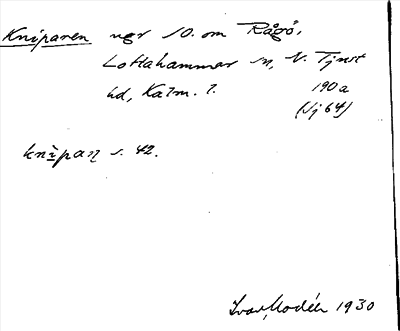 Kniparen ngr 10. om Rågö,
Lottahammar m, N. Tjust
hd, Kalm. l. 190a
(Vj 64)
knipaṛ s. 42.
Ivar Modéer 1930